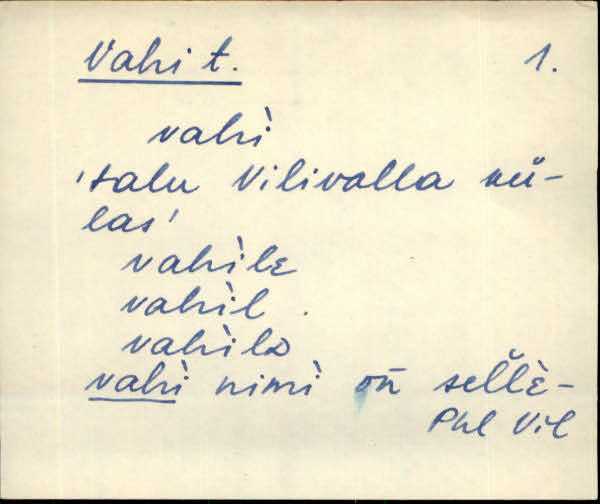 Vahi t. 1.
vahì
'talu Vilivalla kü-
las'
vahìle
vahìl
vahìlᴅ
vahì nimì on selle-
Phl Vil